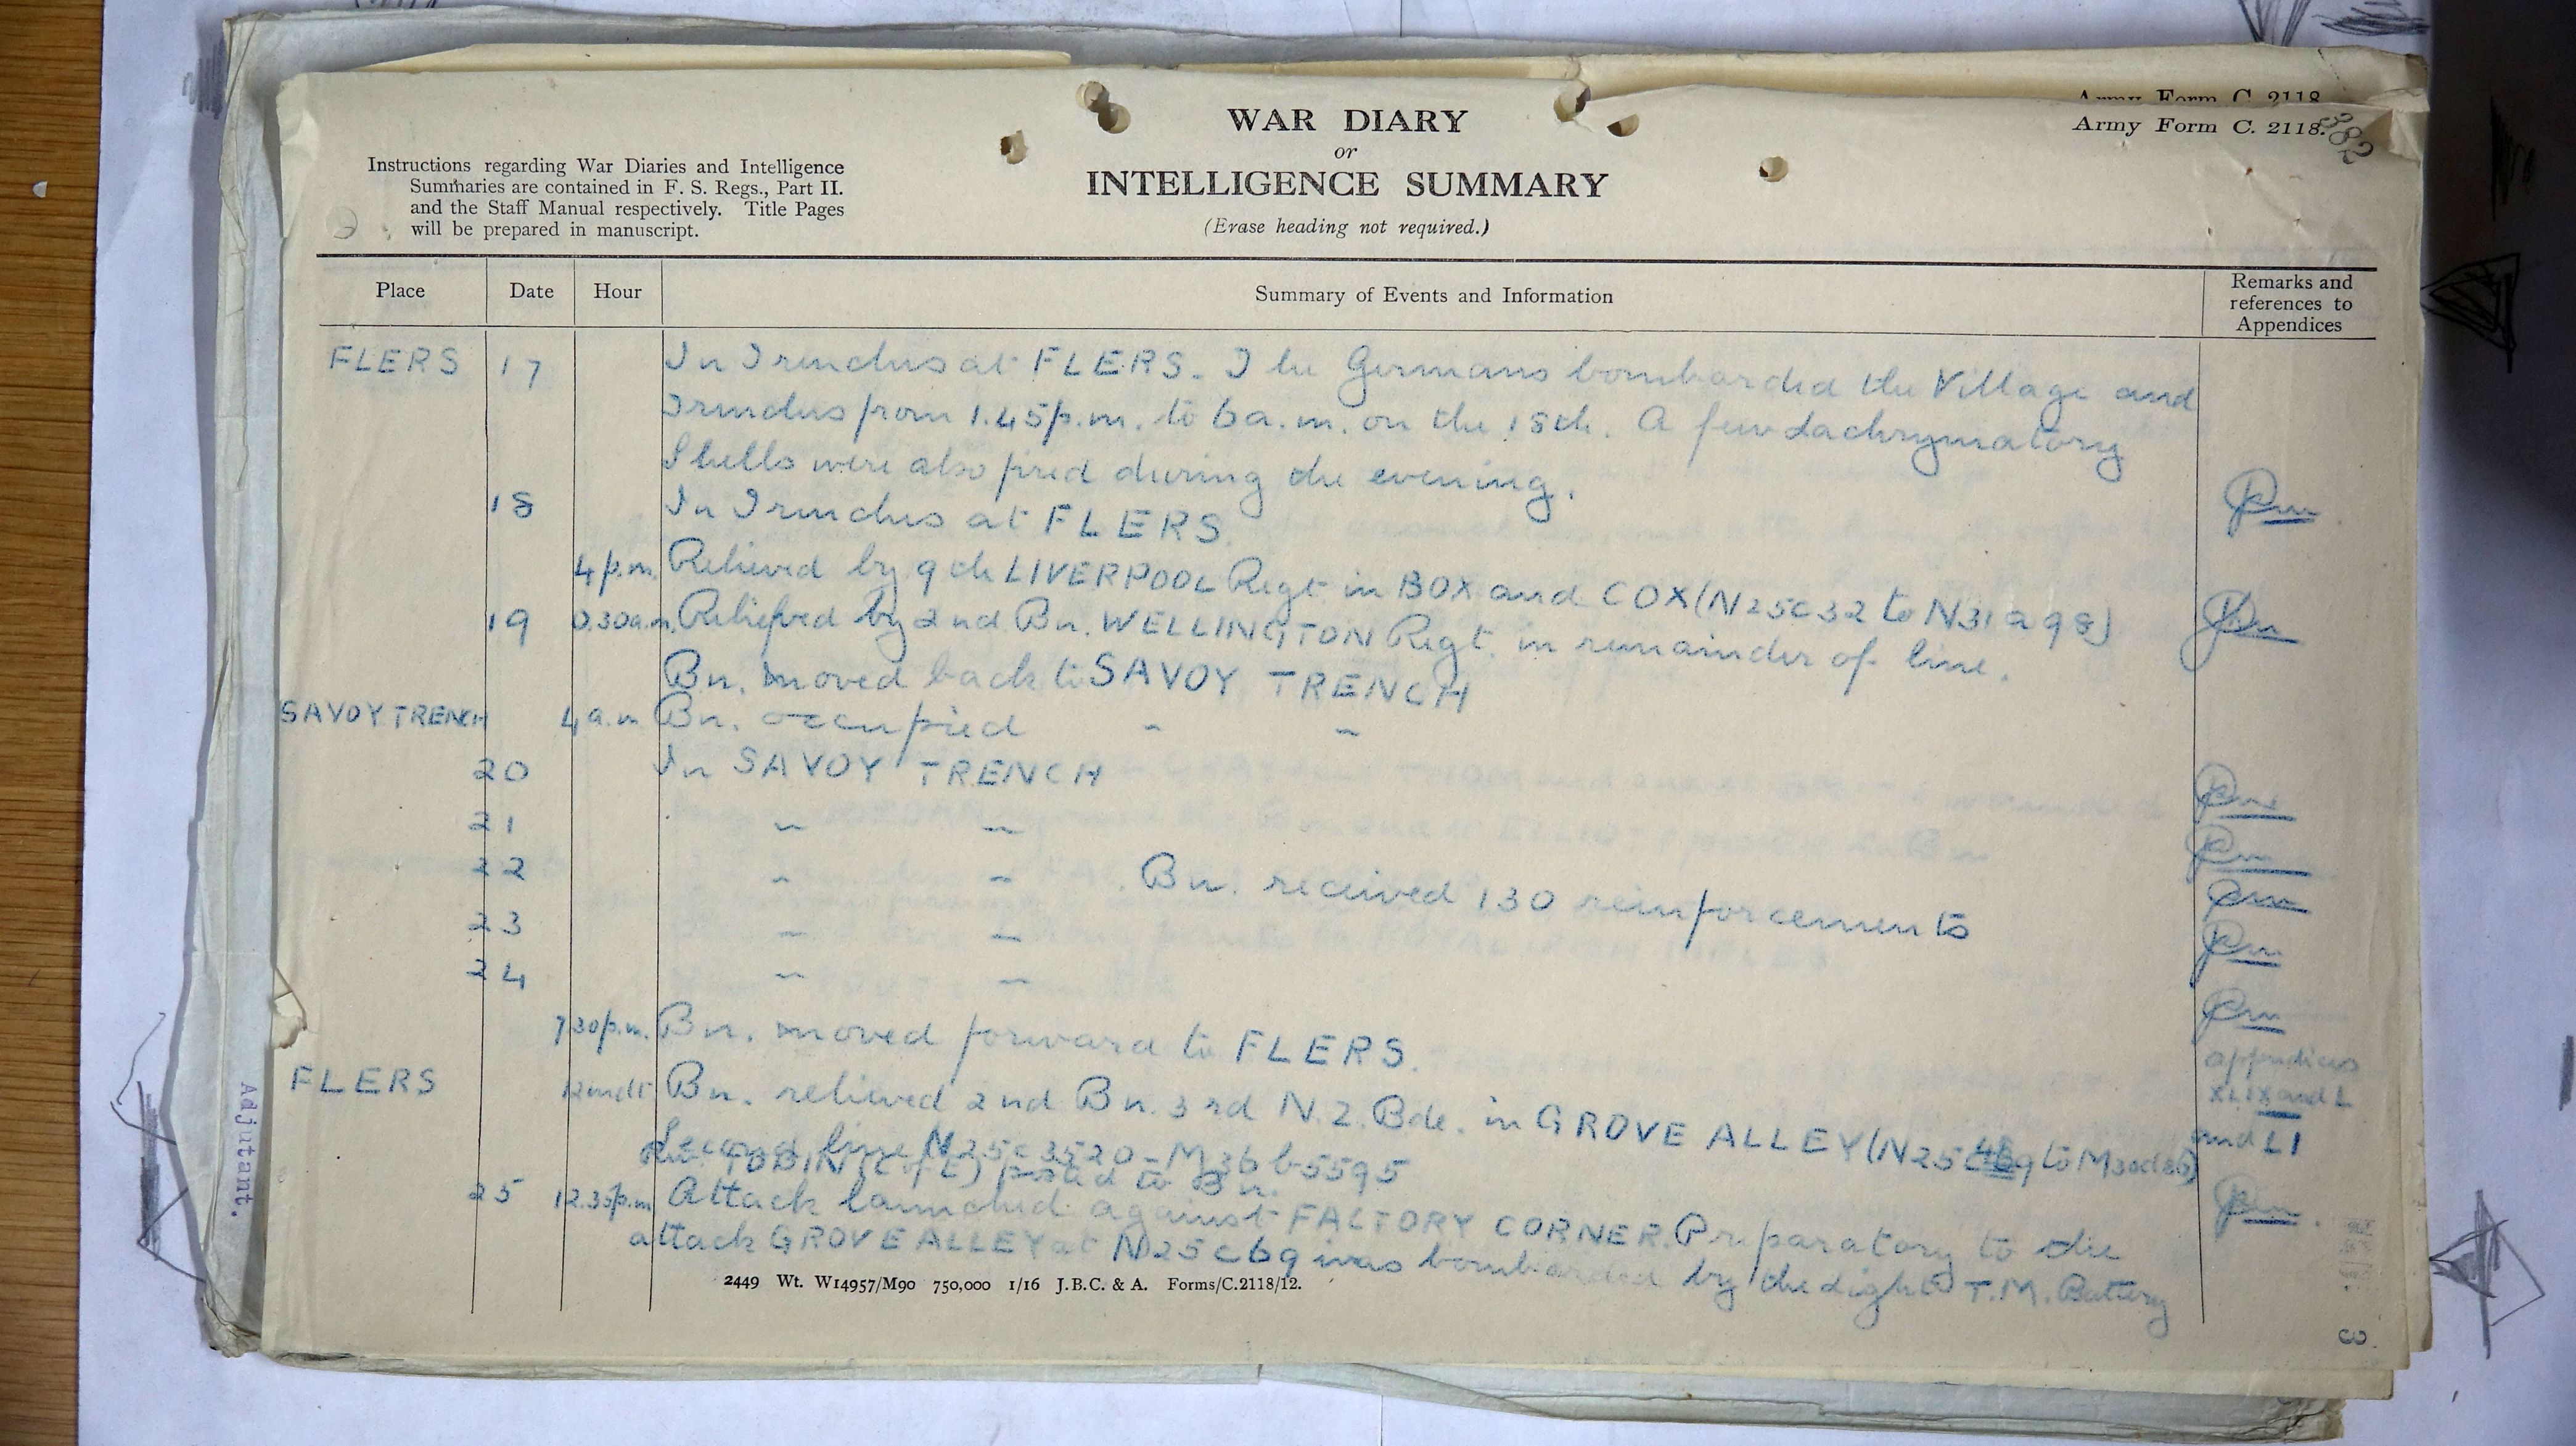 Army Form C. 2118
Army Form C. 2118.
382
WAR DIARY
or
INTELLIGENCE SUMMARY
(Erase heading not required.)
Instructions regarding War Diaries and Intelligence
Summaries are contained in F. S. Regs., Part II.
and the Staff Manual respectively. Title Pages
will be prepared in manuscript.
Place Date Hour Summary of Events and Information Remarks and references to Appendices
FLERS 17 In Trenches at FLERS. The Germans bombarded the Village and
Trenches from 1.45p.m. to 6a.m. on the 18th. A few Lachrymatory
Shells were also fired during the evening.
18 In Trenches at FLERS
4p.m. Relieved by 9th LIVERPOOL Regt in BOX and COX (N25c32 to N31a98)
19 0.30a.m. Relieved by 2nd Bn. WELLINGTON Regt. in remainder of line.
Bn. moved back to SAVOY TRENCH
SAVOY TRENCH 4a.m Bn. occupied " "
20 In SAVOY TRENCH
21 " "
22 " " Bn. received 130 reinforcements
23 " "
24 " "
7 30p.m. Bn. moved forward to FLERS.
FLERS 12mdt Bn. relieved 2nd Bn. 3rd N.Z. Bde. in GROVE ALLEY (N25c to M30d86)
appendices
XLIX and L
and LI
Second line N25c3520 - M36b5595
TOBIN (C of E) posted to Bn.
25 12.35p.m Attack launched against FACTORY CORNER. Preparatory to the
attack GROVE ALLEY at N25c69 was bombarded by the Light T.M. Battery
2449 Wt. W14957/M90 750,000 1/16 J.B.C. & A. Forms/C.2118/12.
Adjutant.
3